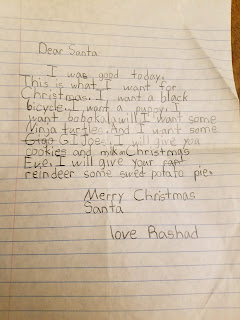 Dear Santa
I was good today.
This is what I want for
Christmas. I want a black
bicycle. I want a puppy. I
want bobokal will I want some
Ninja turtles. And I want some
GI Jose. I will give you
cookies and milk on Christmas
Eve. I will give your
reindeer some swed potato pie.
Merry Christmas
Santa
love Rashad